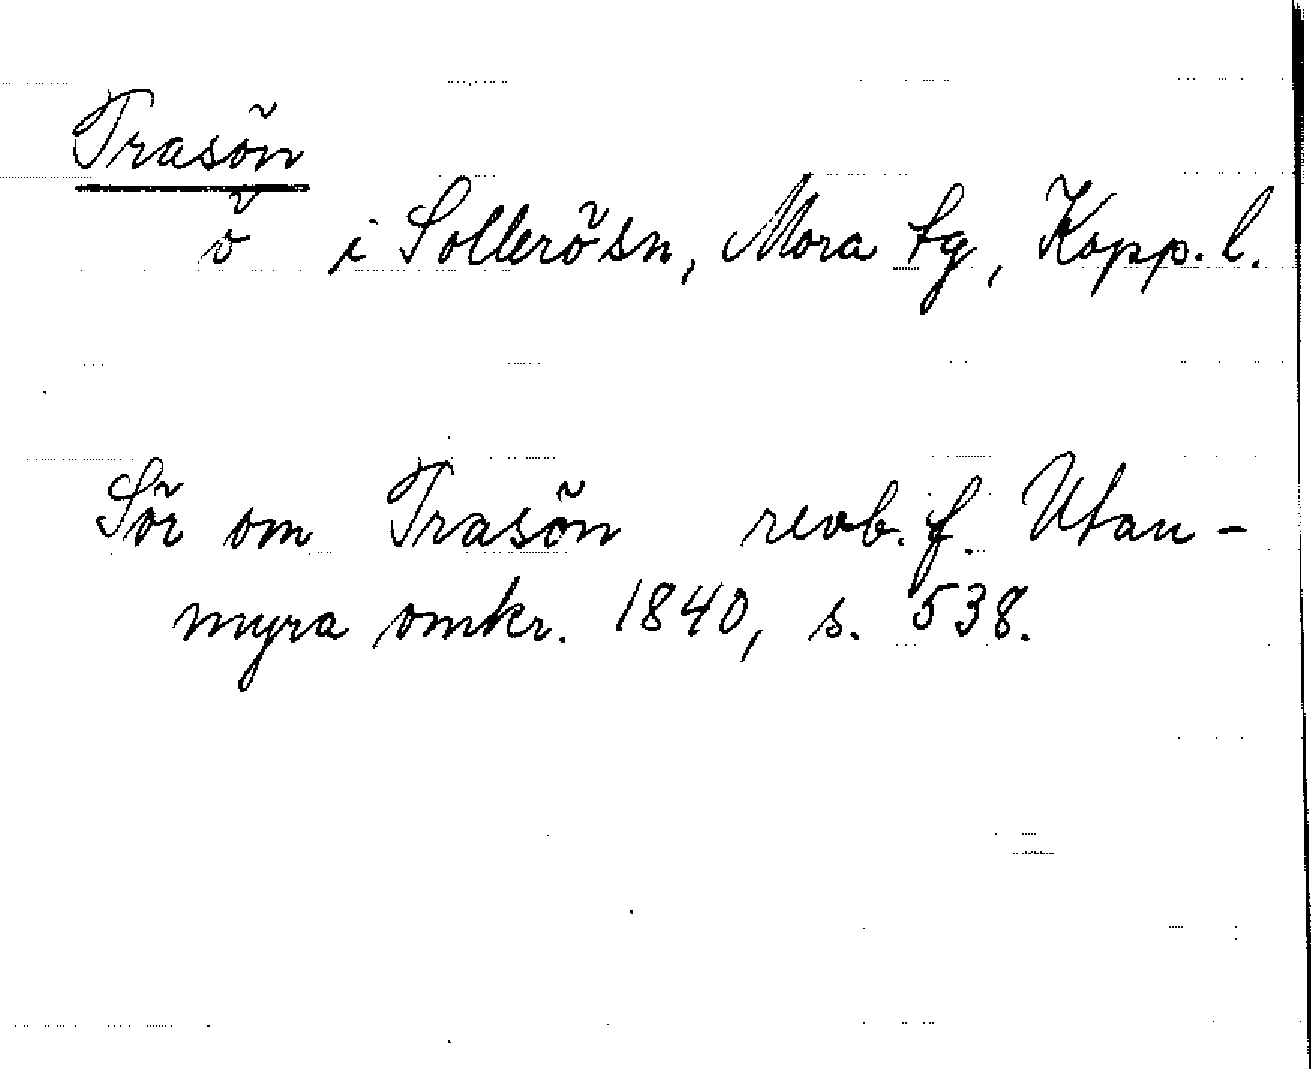 Trasön
ö i Sollerö sn, Mora tg, Kopp. l.
Sör om Trasön revb. f. Utan-
myra omkr. 1840, s. 538.